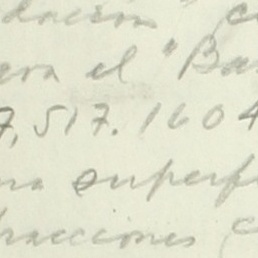 era el "Ba
7,517.1604
na superf
racciones c